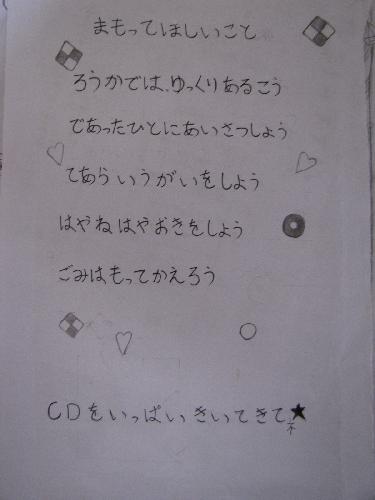 まもってほしいこと
ろうかでは、ゆっくりあるこう
であったひとにあいさつしよう
てあらいうがいをしよう
はやねはやおきをしよう
ごみはもってかえろう
CDをいっぱいきいてきて